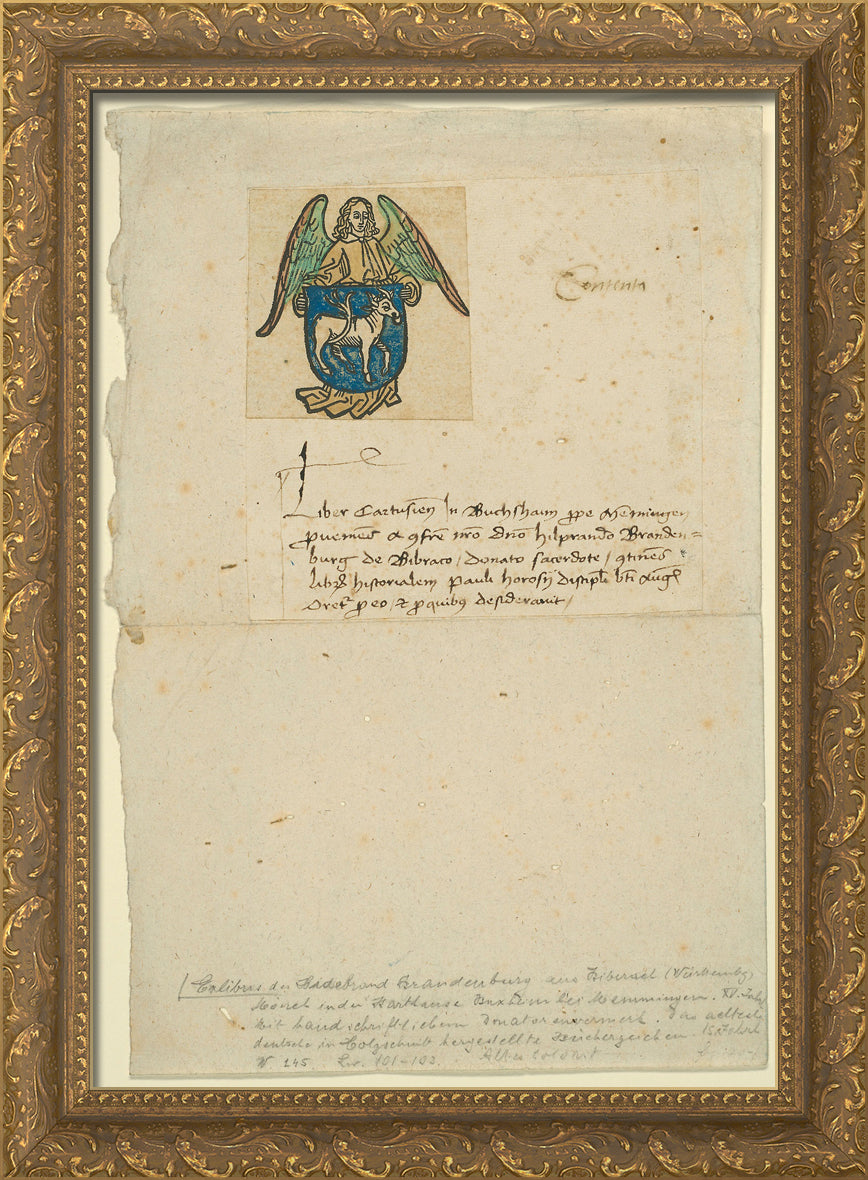 Contenta
Liber Cartusieñ In Buchshaim ppe Mēmingen
pueniēs a ɔfrē nrō Dnō hilprando Branden=
burg de Bibraco / donato sacerdote / ɔtinēs
libꝝ historialem pauli horosij discipli bti Augꝰ
Oretʳ p eo / et p quibꝰ desiderauit /
Exlibris des Hildebrand Brandenburg aus Biberach (Württembg)
Mönch in der Karthause Buxheim bei Memmingen. XV. Jahr
Mit handschriftlichem Donatorenvermerk. Das aelteste
deutsche in Holzschnitt hergestellte Bücherzeichen. 15 Jahrh
W 145 101-103. Altes Colorit